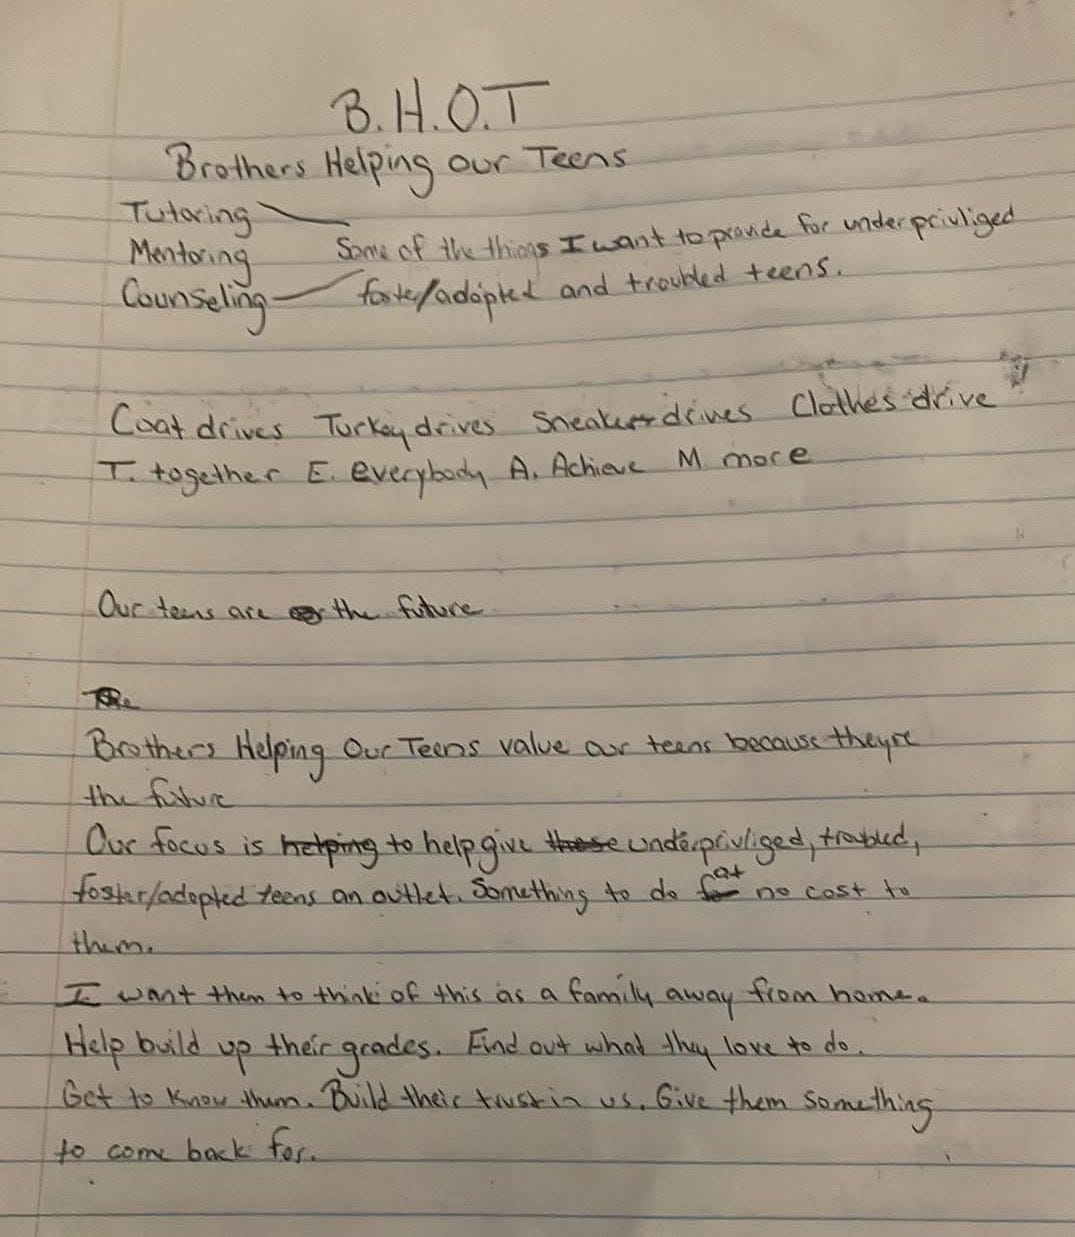 B.H.O.T
Brothers Helping Our Teens
Tutoring
Mentoring Some of the things I want to provide for underpriviliged
Counseling foster/adopted and troubled teens.
Coat drives Turkey drives Sneaker drives Clothes drive
T. together E. everybody A. Achieve M more
Our teens are the future
The
Brothers Helping Our Teens value our teens because theyre
the future
Our focus is helping to help give these underpriviliged, troubled,
foster/adopted teens an outlet. Something to do at no cost to
them.
I want them to think of this as a family away from home.
Help build up their grades. Find out what they love to do.
Get to know them. Build their trust in us. Give them something
to come back for.